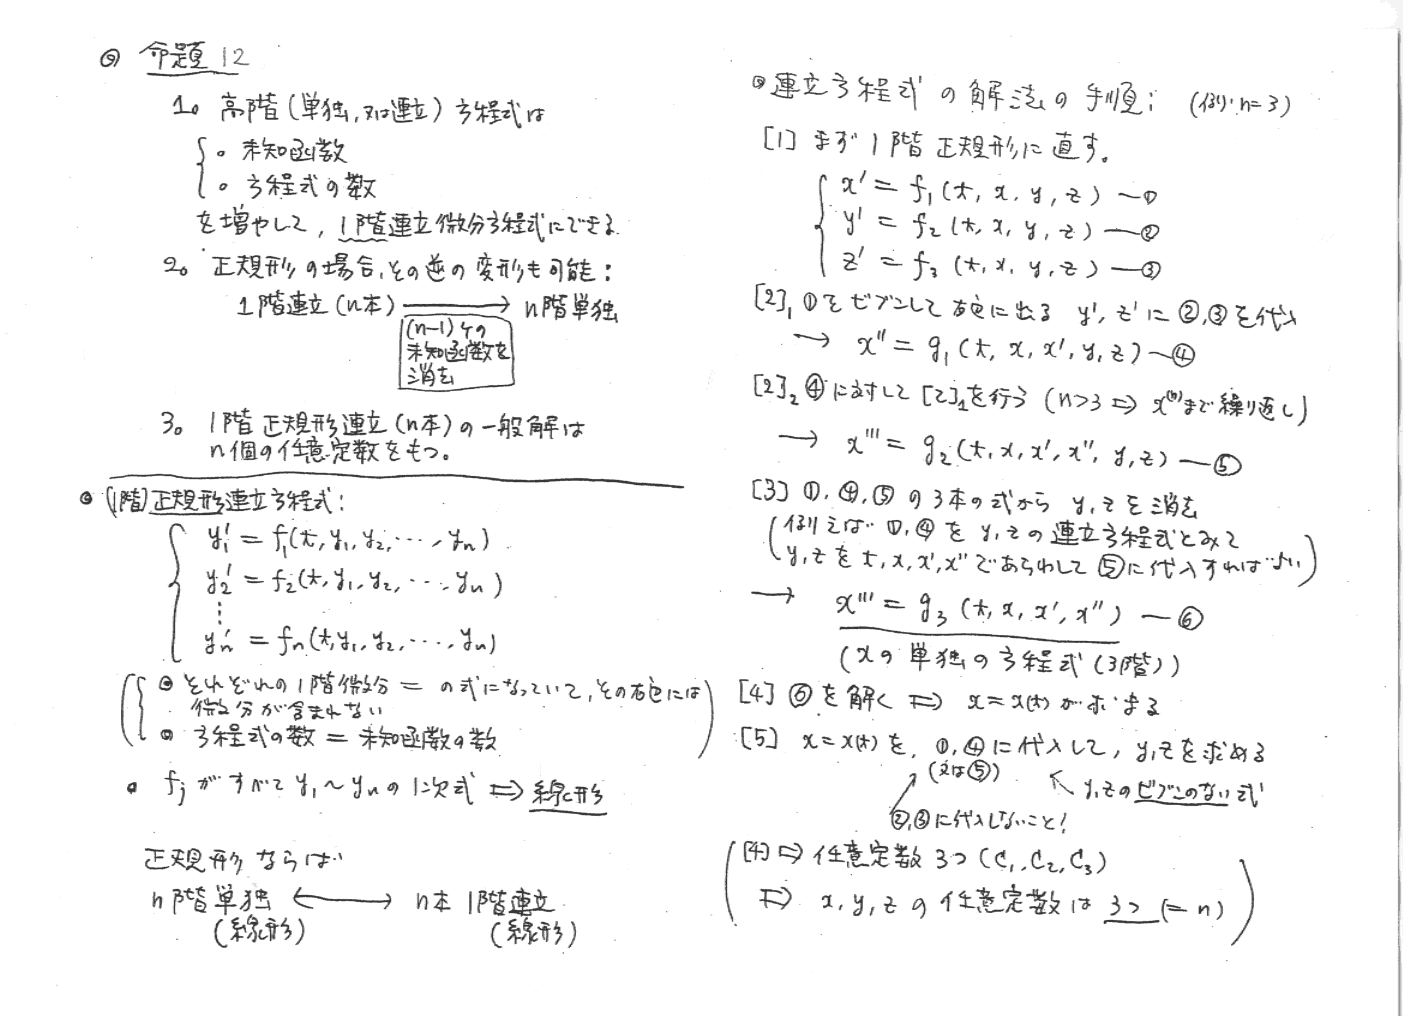 ◎ 命題 12
1。 高階(単独,又は連立)方程式は
。未知函数
。方程式の数
を増やして, 1階連立微分方程式にできる.
2。 正規形の場合,その逆の変形も可能:
1階連立(n本) → n階単独
(n-1)ケの
未知函数を
消去
3。 1階正規形連立(n本)の一般解は
n個の任意定数をもつ。
◎ (1階)正規形連立方程式:
y₁' = f₁(t, y₁, y₂, ⋯, yₙ)
y₂' = f₂(t, y₁, y₂, ⋯, yₙ)
⋮
yₙ' = fₙ(t, y₁, y₂, ⋯, yₙ)
◎ それぞれの1階微分 = の式になっていて,その右辺には
微分が含まれない
◎ 方程式の数 = 未知函数の数
。 fⱼ がすべて y₁~yₙ の1次式 ⇒ 線形
正規形ならば
n階単独 ⟷ n本1階連立
(線形) (線形)
◎連立方程式の解法の手順: (例:n=3)
[1] まず1階正規形に直す。
x' = f₁(t, x, y, z) ―①
y' = f₂(t, x, y, z) ―②
z' = f₃(t, x, y, z) ―③
[2]₁ ①をビブンして右辺に出る y', z' に②,③を代入
→ x'' = g₁(t, x, x', y, z) ―④
[2]₂ ④に対して[2]₁を行う (n>3 ⇒ x⁽ⁿ⁾まで繰り返し)
→ x''' = g₂(t, x, x', x'', y, z) ―⑤
[3] ①,④,⑤の3本の式から y, z を消去
(例えば ①,④ を y, z の連立方程式とみて
y, z を t, x, x', x'' であらわして ⑤に代入すればよい)
→ x''' = g₃(t, x, x', x'') ―⑥
(xの単独の方程式(3階))
[4] ⑥を解く ⇒ x = x(t) が求まる
[5] x = x(t) を, ①,④に代入して, y, z を求める
(又は⑤)
y, z のビブンのない式
②,③に代入しないこと!
[4] ⇒ 任意定数3つ (C₁, C₂, C₃)
⇒ x, y, z の任意定数は3つ (= n)